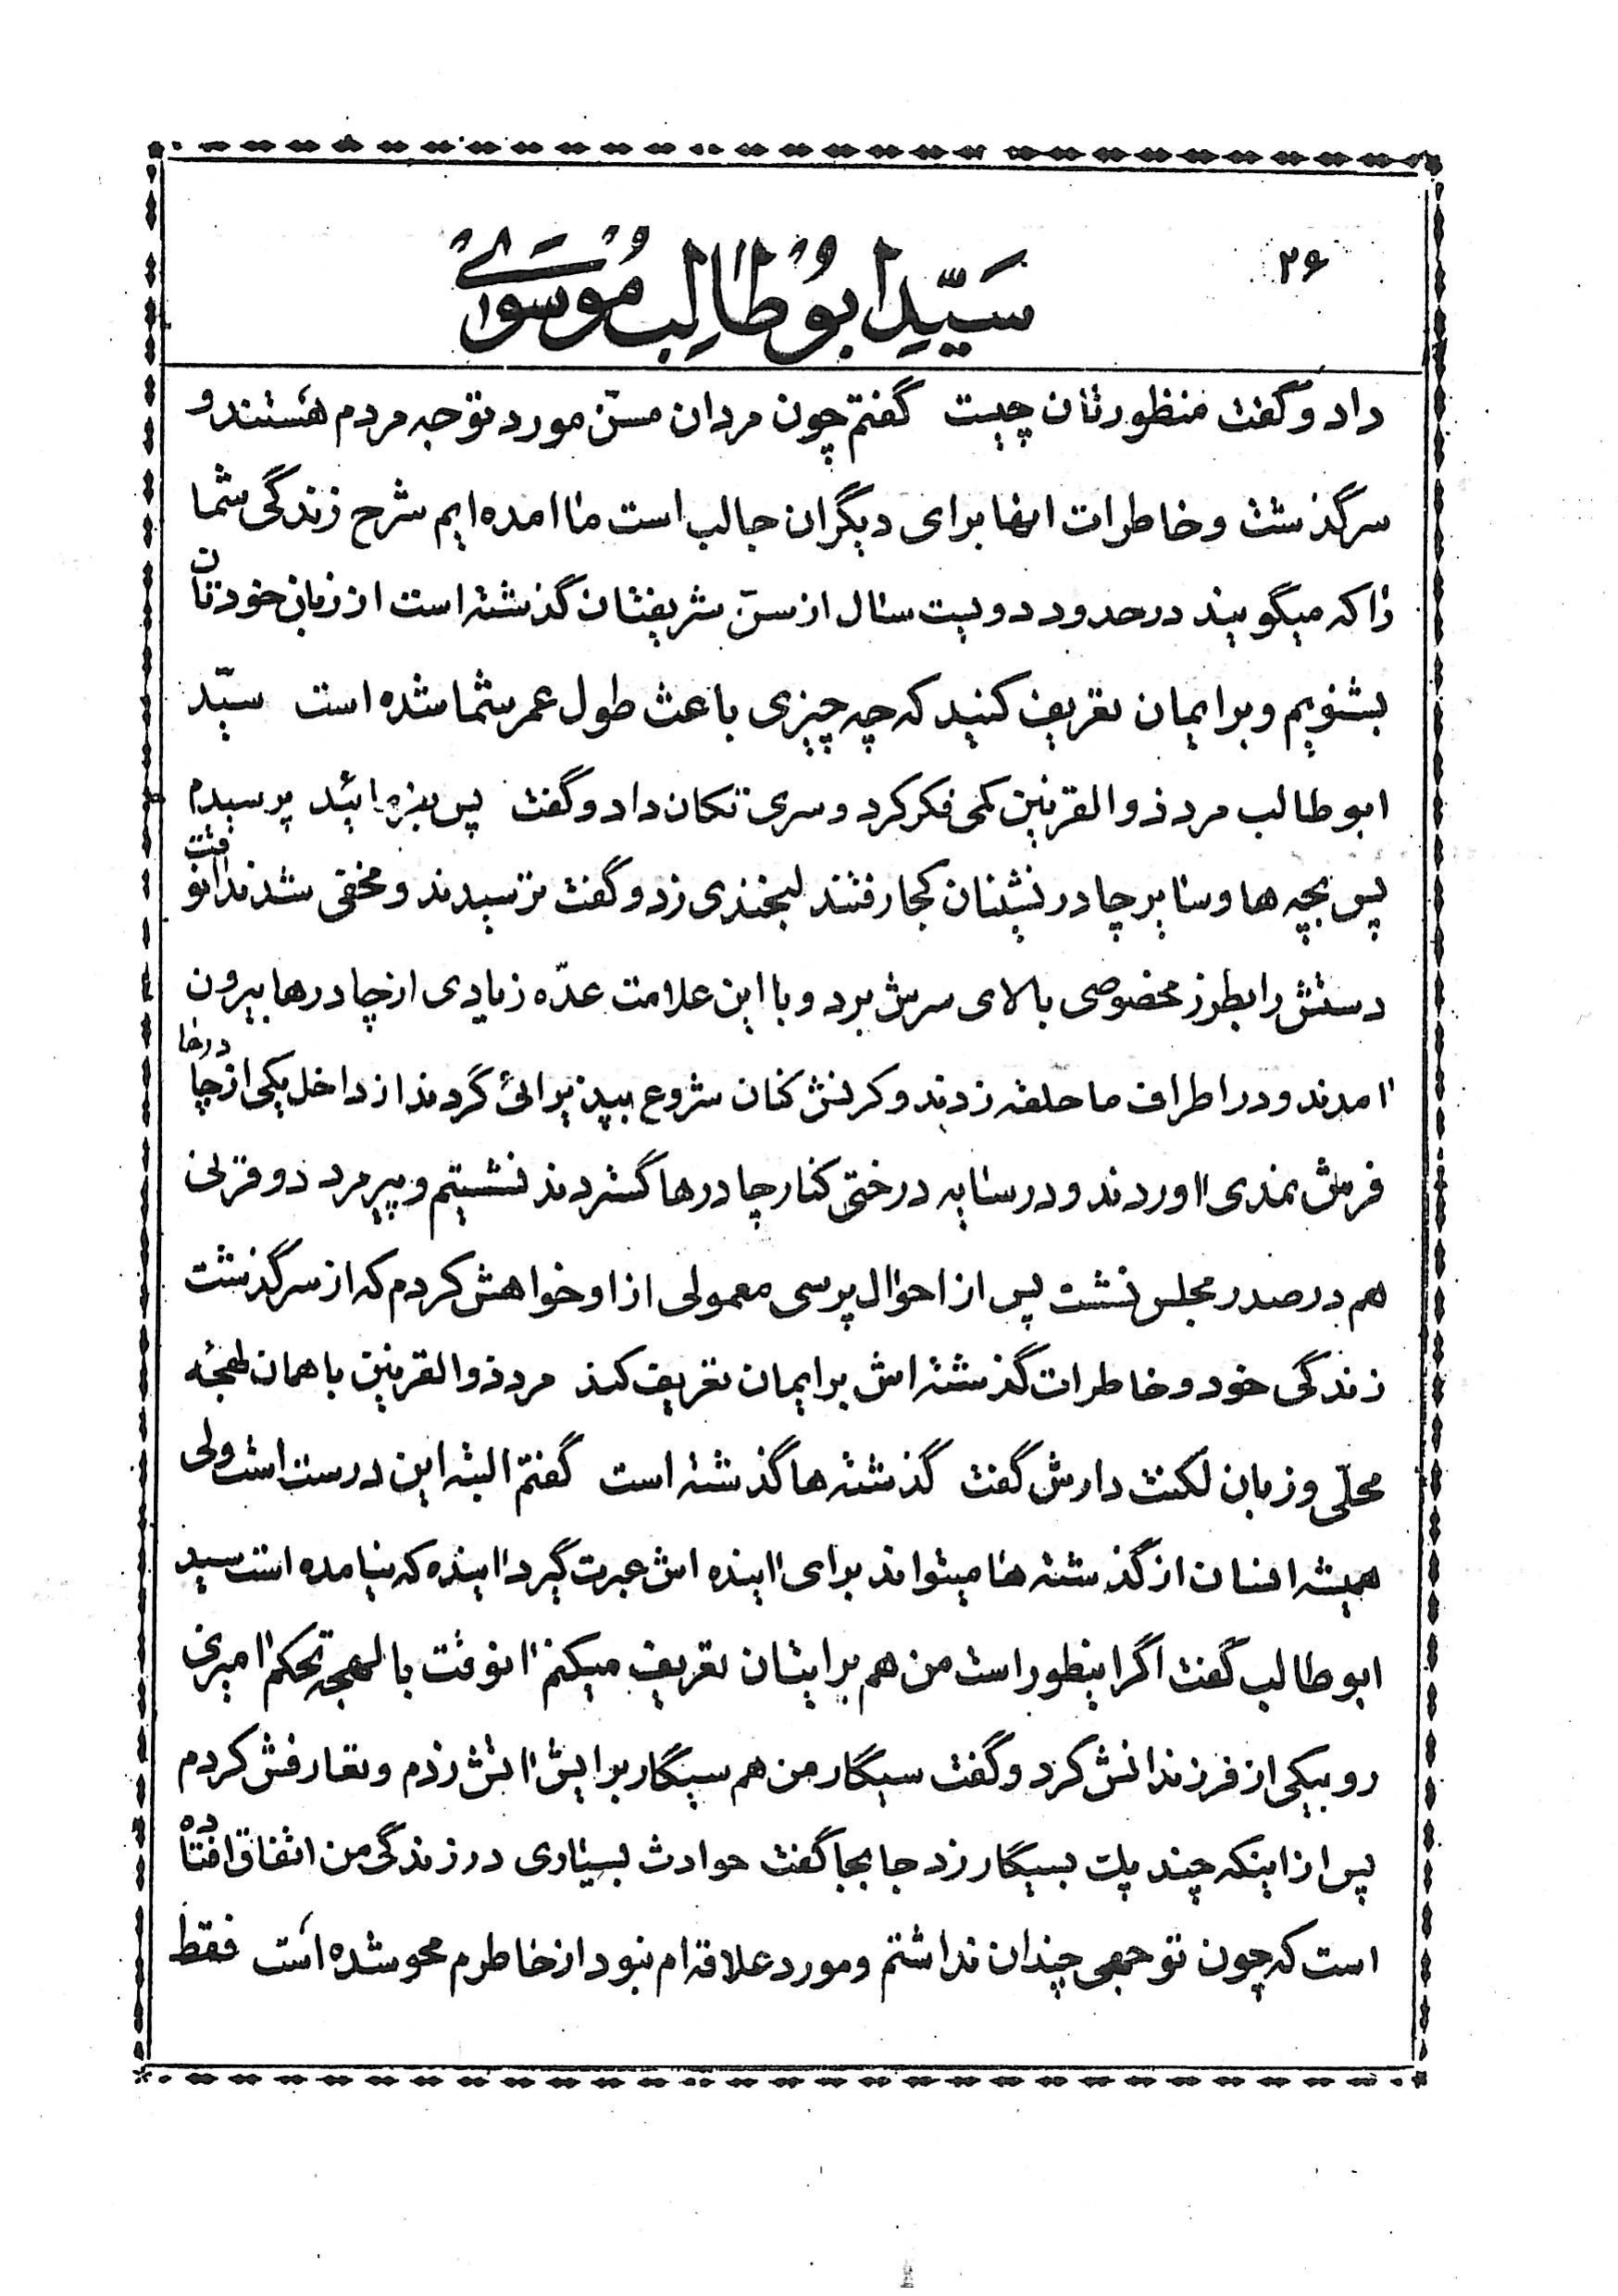 ۲۶
سَیّدِ ابُوطالِب مُوسَوی
داد و گفت منظورتان چیست گفتم چون مردان مسنّ مورد توجه مردم هستند و
سرگذشت و خاطرات انها برای دیگران جالب است ما امده ایم شرح زندگی شما
را که میگویند در حدود دویست سال از سنّ شریفتان گذشته است از زبان خودتان
بشنویم و برایمان تعریف کنید که چه چیزی باعث طول عمر شما شده است سیّد
ابوطالب مرد ذوالقرنین کمی فکر کرد و سری تکان داد و گفت پس بفرمائید پرسیدم
پس بچه ها و سایر چادرنشینان کجا رفتند لبخندی زد و گفت ترسیدند و مخفی شدند انوقت
دستش را بطرز مخصوصی بالای سرش برد و با این علامت عدّه زیادی از چادرها بیرون
امدند و در اطراف ما حلقه زدند و کرنش کنان شروع بپذیرائی گردند از داخل یکی از چادرها
فرش نمدی اوردند و در سایه درختی کنار چادرها گستردند نشستیم و پیرمرد دو قرنی
هم در صدر مجلس نشست پس از احوال پرسی معمولی از او خواهش کردم که از سرگذشت
زندگی خود و خاطرات گذشته اش برایمان تعریف کند مرد ذوالقرنین با همان لهجۀ
محلّی و زبان لکنت دارش گفت گذشته ها گذشته است گفتم البته این درست است ولی
همیشه انسان از گذشته ها میتواند برای اینده اش عبرت گیرد اینده که نیامده است سید
ابوطالب گفت اگر اینطور است من هم برایتان تعریف میکنم انوقت با لهجه تحکم امیزی
رو بیکی از فرزندانش کرد و گفت سیگار من هم سیگار برایش اتش زدم و تعارفش کردم
پس از اینکه چند پک بسیگار زد جابجا گفت حوادث بسیاری در زندگی من اتفاق افتاده
است که چون توجهی چندان نداشتم و مورد علاقه ام نبود از خاطرم محو شده است فقط